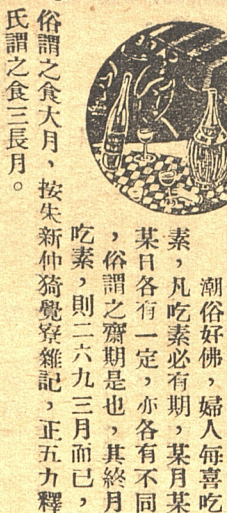 潮俗好佛，婦人每喜吃
素，凡吃素必有期，某月某
某日各有一定，亦各有不同
，俗謂之齋期是也，其終月
吃素，則二六九三月而已，
俗謂之食大月，按朱新仲猗覺寮雜記，正五九釋
氏謂之食三長月。